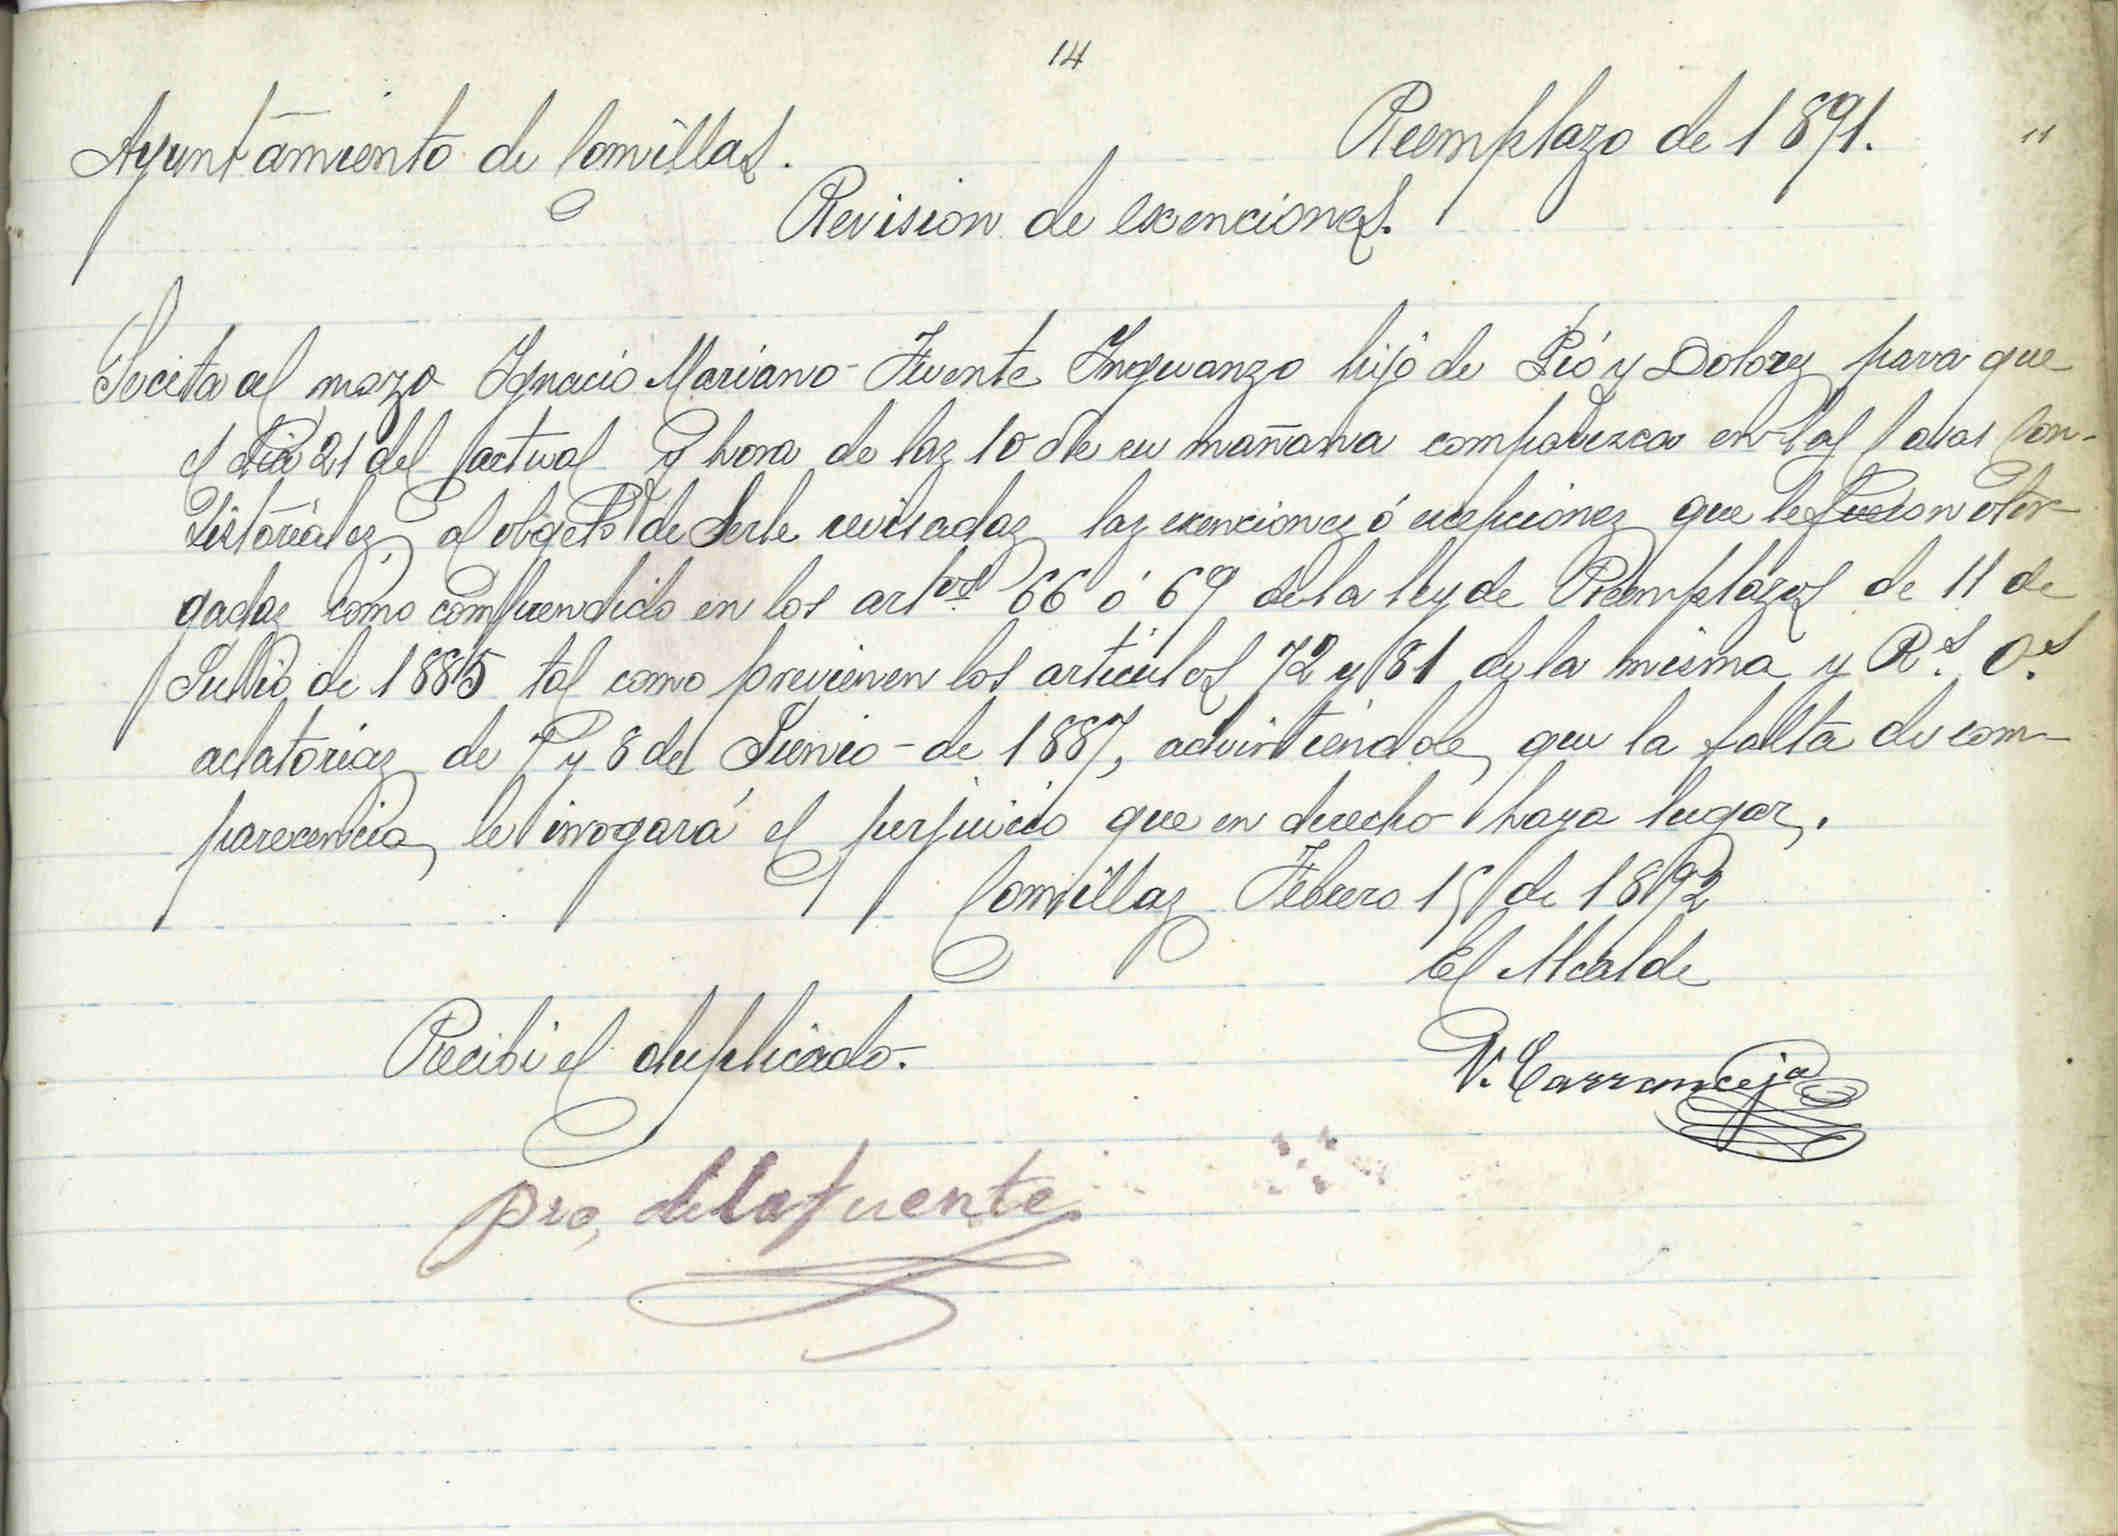 14
Ayuntamiento de Comillas. Reemplazo de 1891. 11
Revision de exenciones.
Se cita al mozo Ygnacio Mariano Fuente Ynguanzo hijo de Pio y Dolores para que
el dia 21 del actual y hora de las 10 de su mañana comparezca en las Casas Con-
sistoriales, al objeto de serle revisadas las exenciones ó excepciones que le fueron otor-
gadas como comprendido en los artos 66 ó 69 de la ley de Reemplazos de 11 de
Julio de 1885 tal como previenen los articulos 72 y 81 de la misma y Rs. Os.
aclatorias de 7 y 8 de Junio de 1887, advirtiendole, que la falta de com-
parecencia, le irrogará el perjuicio que en derecho haya lugar.
Comillas Febrero 15 de 1892
El Alcalde
Recibi el duplicado. V. Carranceja
Pio, de la fuente